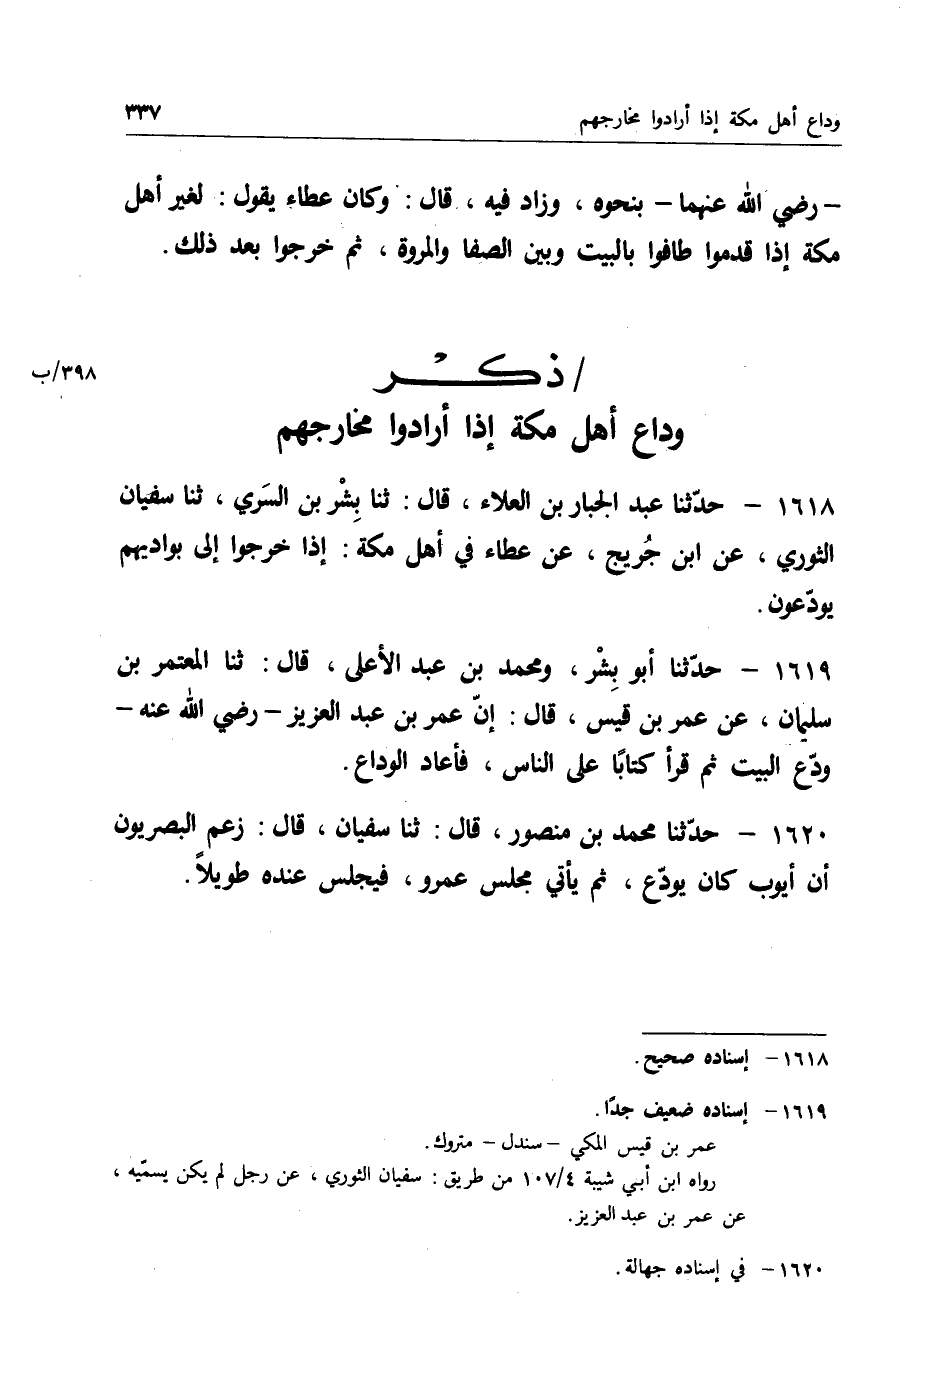 وداع أهل مكة إذا أرادوا مخارجهم ٣٣٧
– رضي الله عنهما – بنحوه ، وزاد فيه ، قال : وكان عطاء يقول : لغير أهل
مكة إذا قدموا طافوا بالبيت وبين الصفا والمروة ، ثم خرجوا بعد ذلك .
/ ذكْر ٣٩٨/ب
وداع أهل مكة إذا أرادوا مخارجهم
١٦١٨ – حدّثنا عبد الجبار بن العلاء ، قال : ثنا بِشْر بن السَري ، ثنا سفيان
الثوري ، عن ابن جُريج ، عن عطاء في أهل مكة : إذا خرجوا إلى بواديهم
يودّعون .
١٦١٩ – حدّثنا أبو بِشْر ، ومحمد بن عبد الأعلى ، قال : ثنا المعتمر بن
سليمان ، عن عمر بن قيس ، قال : إنّ عمر بن عبد العزيز – رضي الله عنه –
ودّع البيت ثم قرأ كتابًا على الناس ، فأعاد الوداع .
١٦٢٠ – حدّثنا محمد بن منصور ، قال : ثنا سفيان ، قال : زعم البصريون
أن أيوب كان يودّع ، ثم يأتي مجلس عمرو ، فيجلس عنده طويلاً .
١٦١٨ – إسناده صحيح .
١٦١٩ – إسناده ضعيف جدًا .
عمر بن قيس المكي – سندل – متروك .
رواه ابن أبي شيبة ١٠٧/٤ من طريق : سفيان الثوري ، عن رجل لم يكن يسمّيه ،
عن عمر بن عبد العزيز .
١٦٢٠ – في إسناده جهالة .